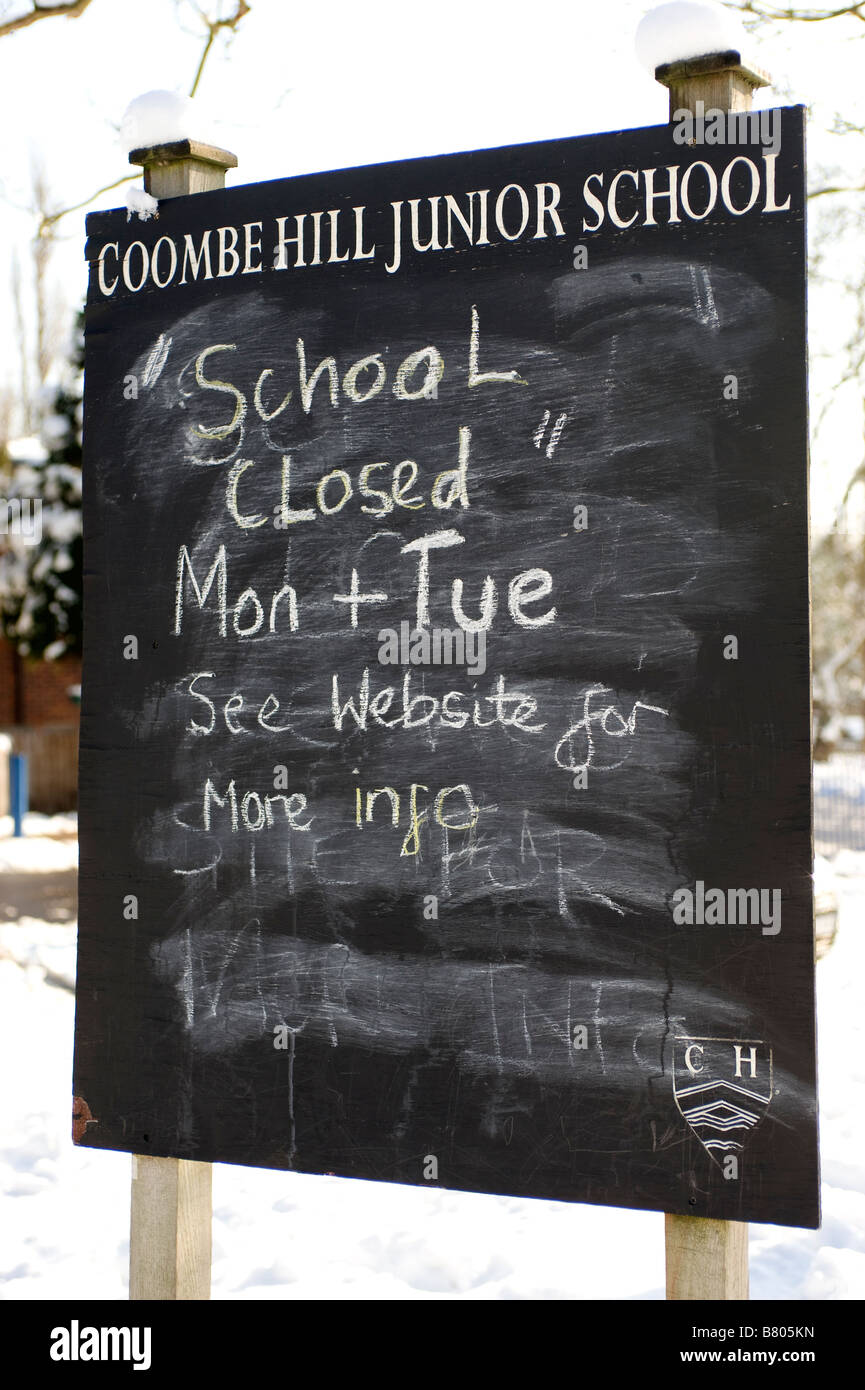 COOMBE HILL JUNIOR SCHOOL
"School
CLosed"
Mon + Tue
See Website for
More info
FOR
INFO
C H
alamy
Image ID: B805KN
www.alamy.com